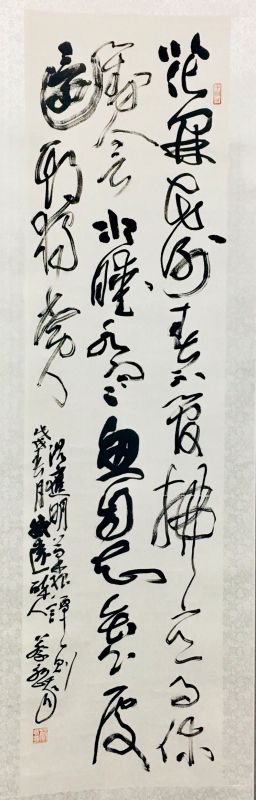 花開花謝春不管拂意事休
對人言水暖水寒魚自知會心處
還期獨賞
洪應明菜根譚句
戊戌 月